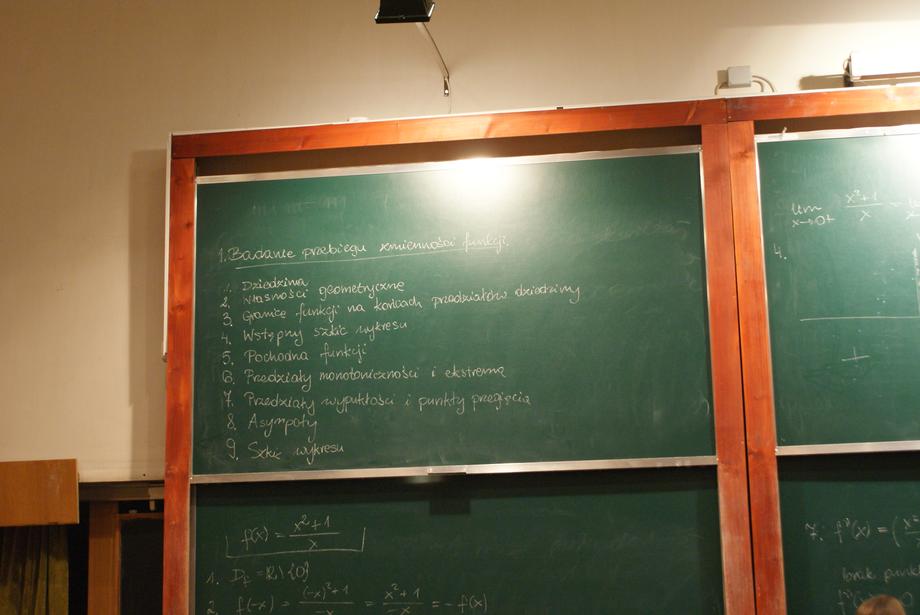 1. Badanie przebiegu zmienności funkcji.
1. Dziedzina
2. Własności geometryczne
3. Granice funkcji na końcach przedziałów dziedziny
4. Wstępny szkic wykresu
5. Pochodna funkcji
6. Przedziały monotoniczności i ekstrema
7. Przedziały wypukłości i punkty przegięcia
8. Asympoty
9. Szkic wykresu
f(x) = x²+1 / x
1. D_f = ℝ \ {0}
2. f(-x) = (-x)²+1 / -x = x²+1 / -x = - f(x)
lim x→0+ x²+1 / x =
4.
+
7. f''(x) = (x²
brak punkt